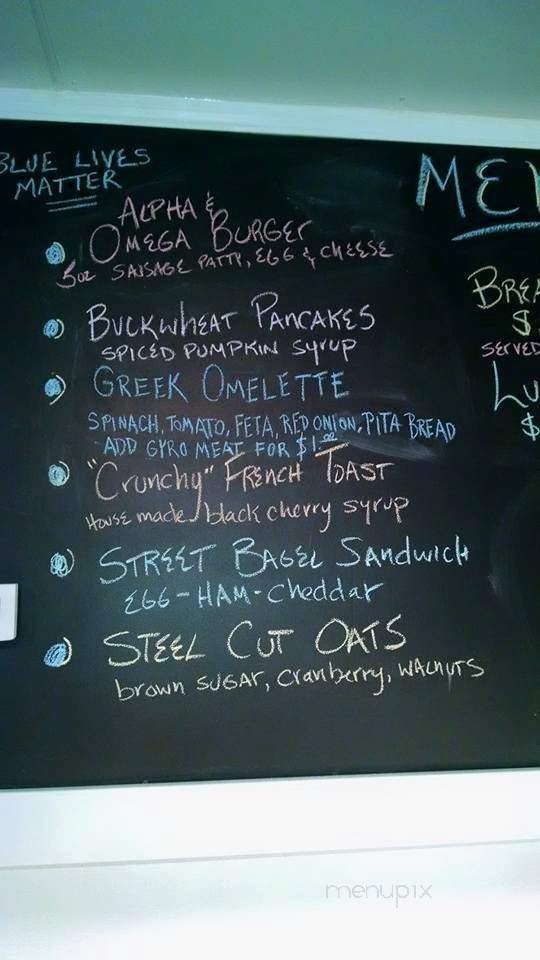 BLUE LIVES
MATTER
ALPHA &
OMEGA BURGER
5oz SAUSAGE PATTY, EGG & CHEESE
BUCKWHEAT PANCAKES
SPICED PUMPKIN SYRUP
GREEK OMELETTE
SPINACH, TOMATO, FETA, RED ONION, PITA BREAD
ADD GYRO MEAT FOR $1.00
"Crunchy" FRENCH TOAST
House made black cherry syrup
STREET BAGEL SANDWICH
EGG - HAM - Cheddar
STEEL CUT OATS
brown SUGAR, Cranberry, WALNUTS
$
SERVED
$
menupix